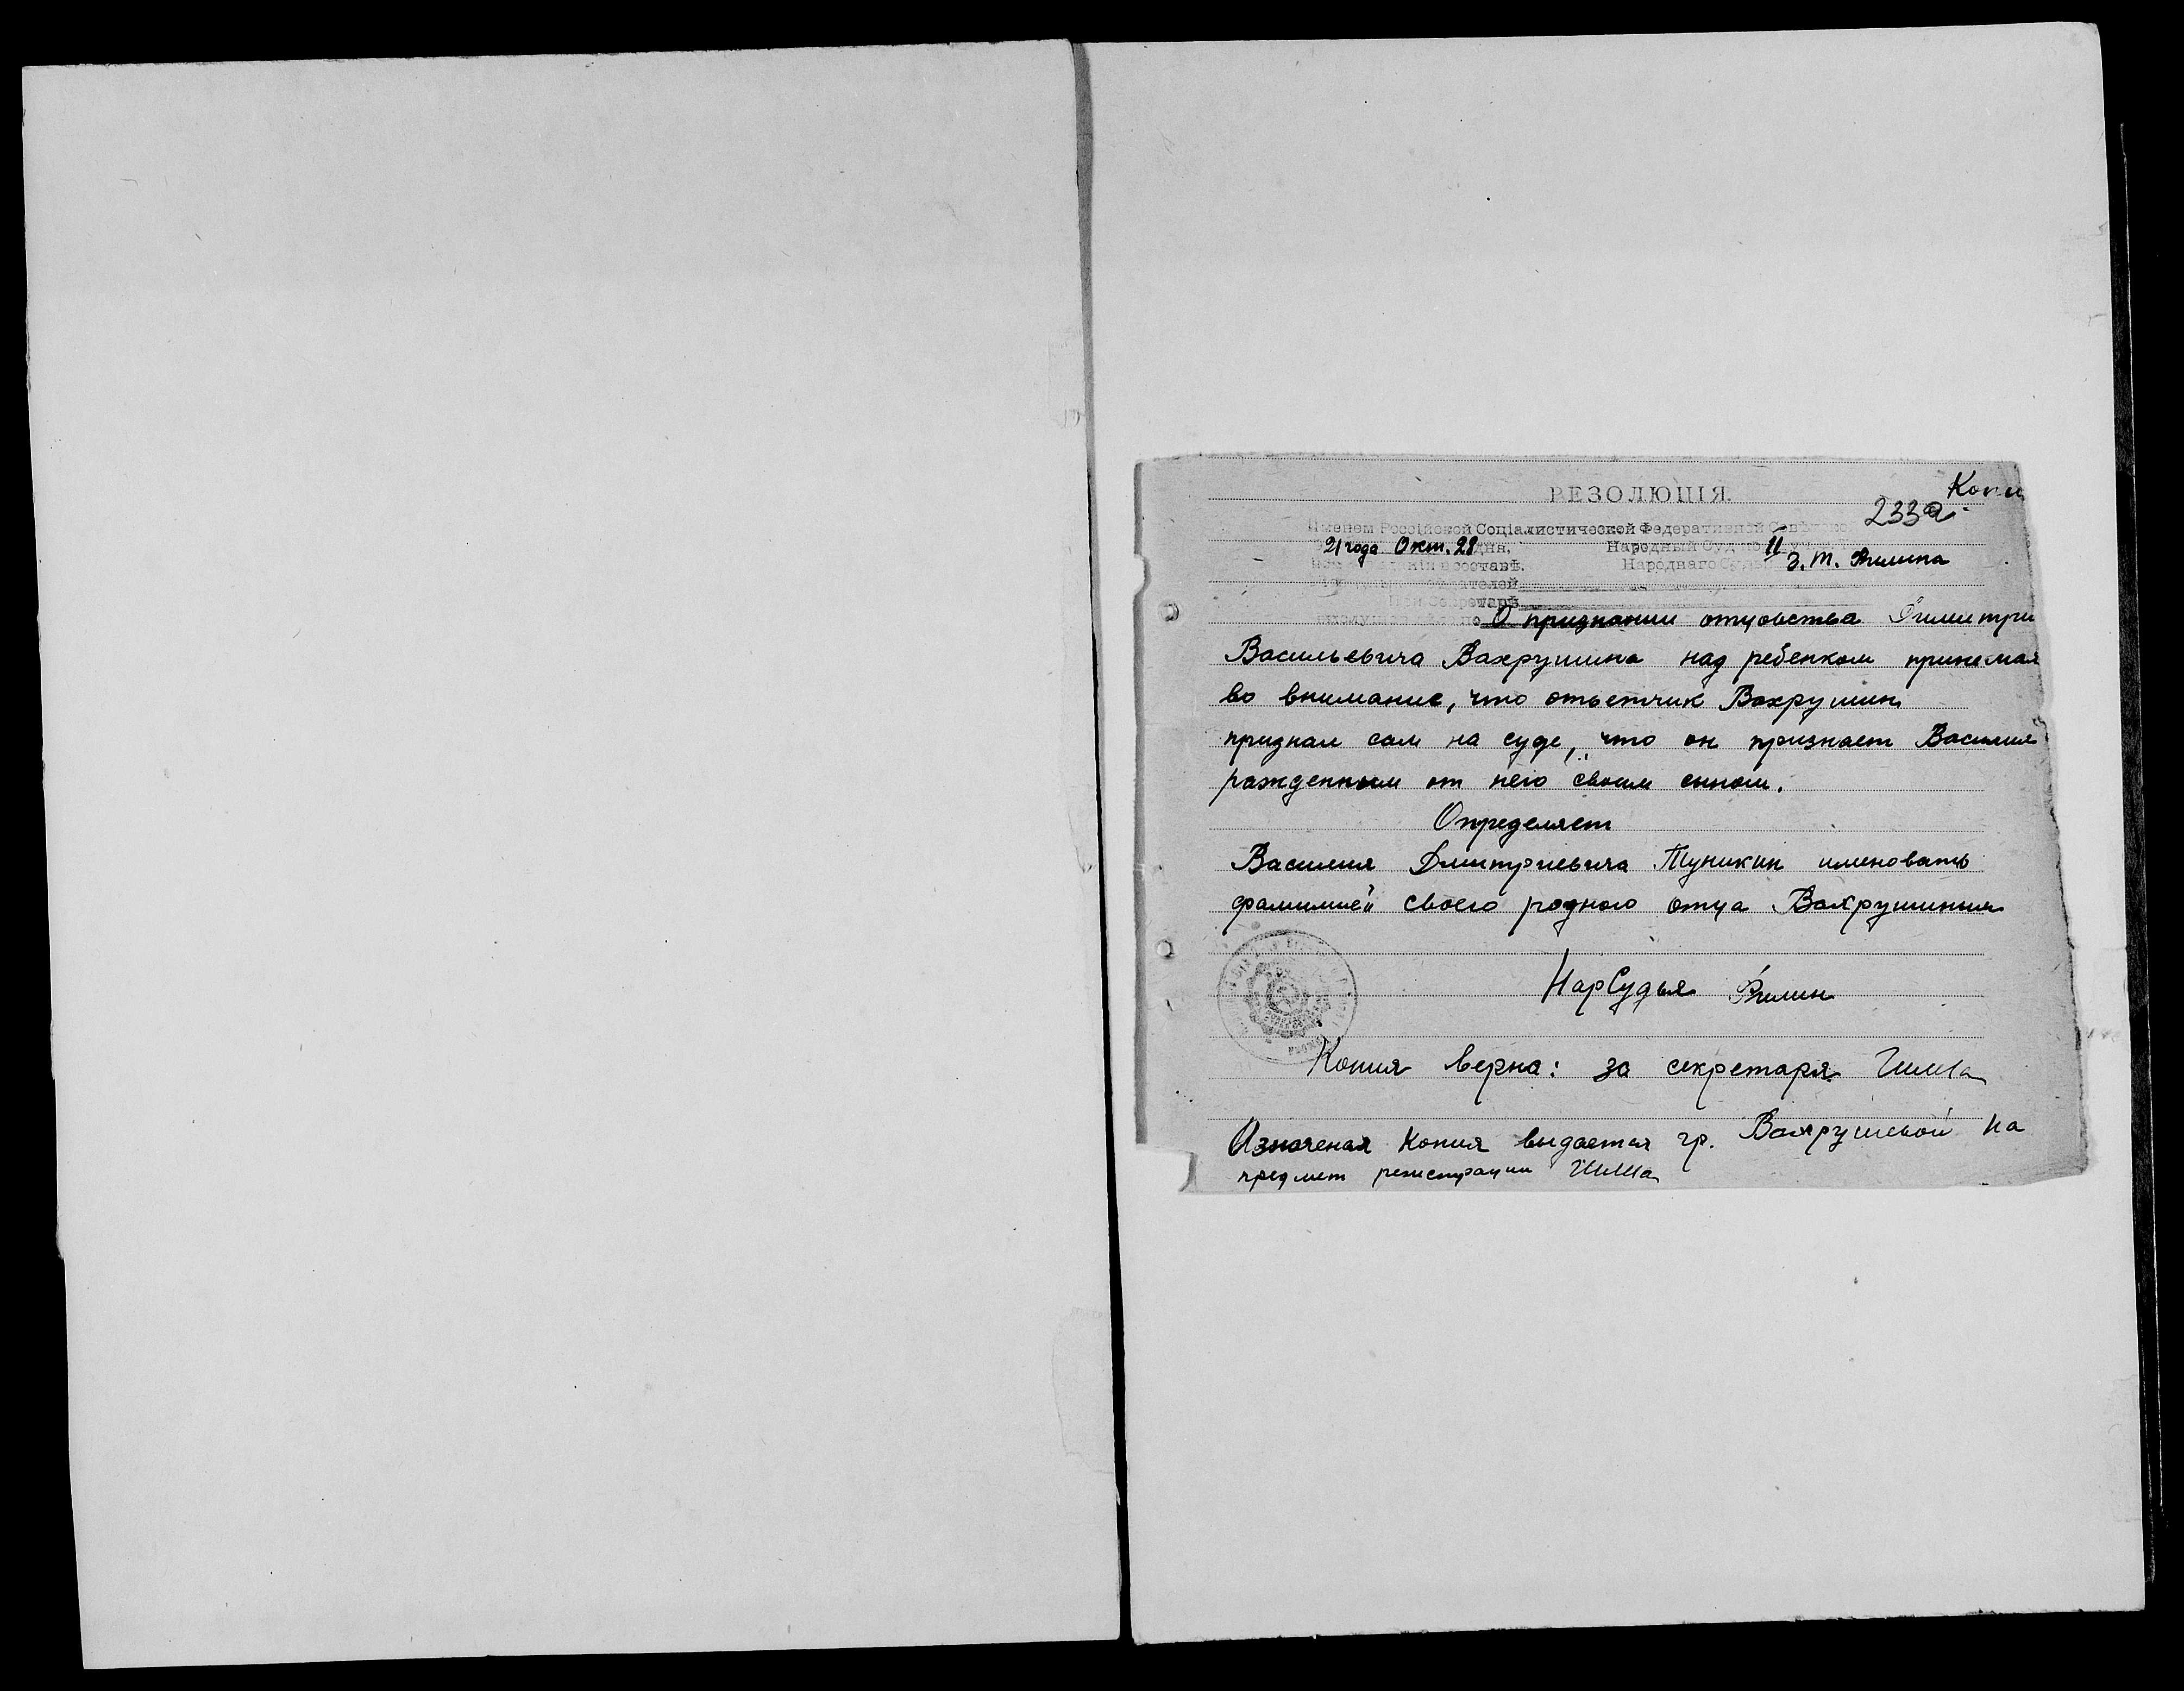 Копи
РЕЗОЛЮЦІЯ
233а
Именем Россійской Соціалистической Федеративной
21 года Окт. 28 дня. Народный Суд 11
составѣ. Народнаго Суд З. Т.
Секретарѣ
О признании отцовства Димитри
Васильевича Вахрушина над ребенком принемая
во внимание, что ответчик Вахрушин
признал сам на суде, что он признает Василия
рожденным от него своим сыном.
Определяет
Василия Дмитриевича Туникин именовать
фамилией своего родного отца Вахрушиным
НарСудья
Копия верна: за секретаря
Означеная копия выдается гр. Вахрушевой на
предмет регистрации